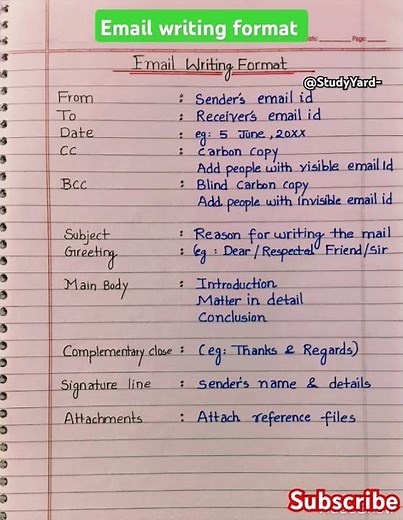 Email writing format
Page:
Email Writing Format
@StudyYard-
From : Sender's email id
To : Receiver's email id
Date : eg: 5 June, 20XX
CC : Carbon copy
Add people with visible email Id
BCC : Blind Carbon copy
Add people with Invisible email id
Subject : Reason for writing the mail
Greeting : (eg : Dear / Respected Friend/Sir
Main Body : Introduction
Matter in detail
Conclusion
Complementary close : (eg: Thanks & Regards)
Signature line : Sender's name & details
Attachments : Attach reference files
Subscribe